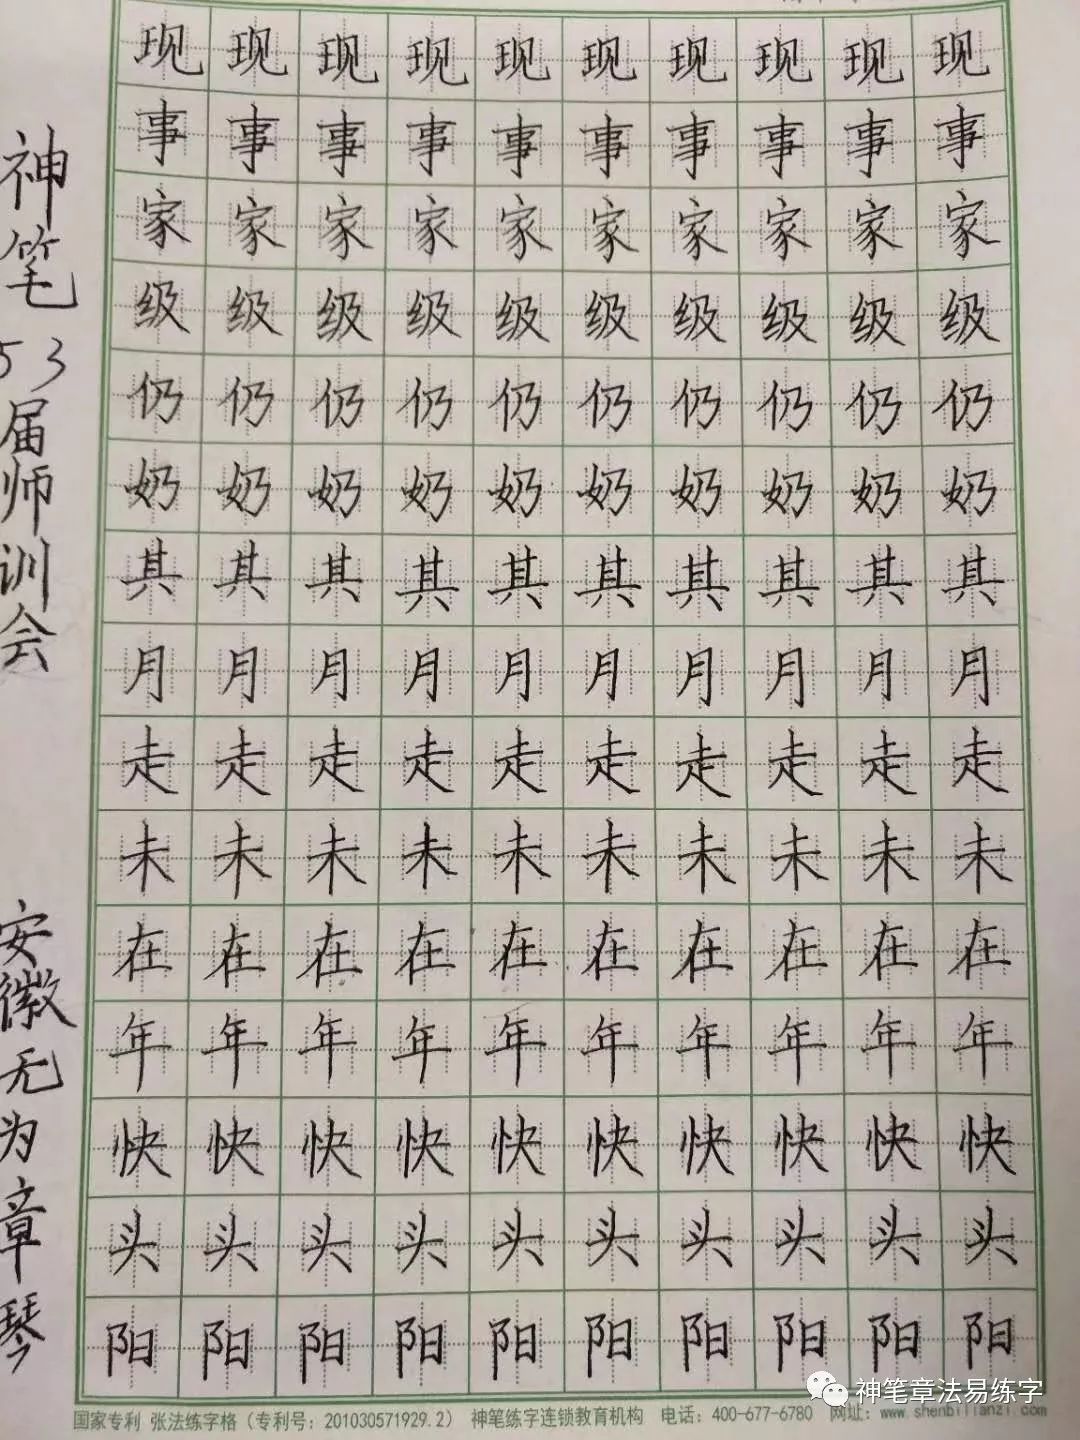 现现现现现现现现现现
事事事事事事事事事事
家家家家家家家家家家
级级级级级级级级级级
仍仍仍仍仍仍仍仍仍仍
奶奶奶奶奶奶奶奶奶奶
其其其其其其其其其其
月月月月月月月月月月
走走走走走走走走走走
未未未未未未未未未未
在在在在在在在在在在
年年年年年年年年年年
快快快快快快快快快快
头头头头头头头头头头
阳阳阳阳阳阳阳阳阳阳
神笔53届师训会 安徽无为章琴
神笔章法易练字
国家专利 张法练字格（专利号：201030571929.2） 神笔练字连锁教育机构 电话：400-677-6780 网址：www.shenbilianzi.com